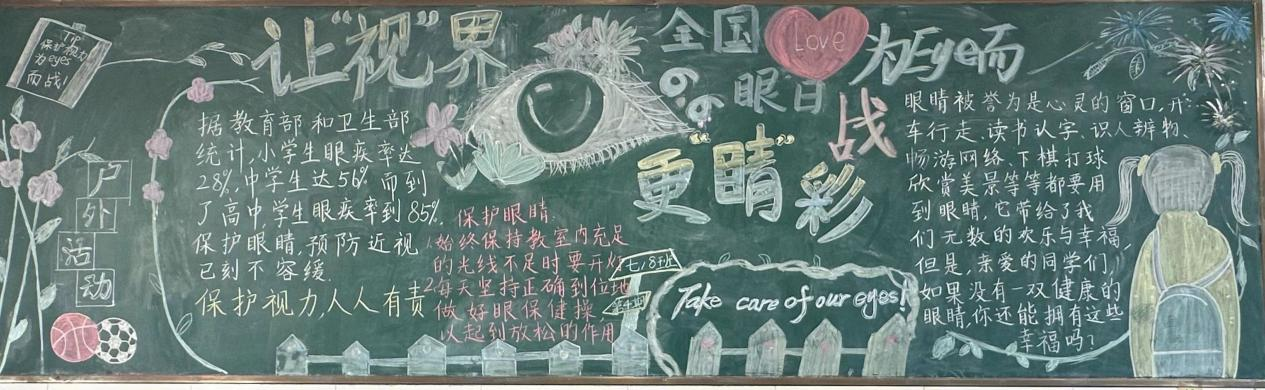 TIP
保护视力
为eyes
而战!
让"视"界
全国
Love
为Eye而
6.6
眼日
战
更"睛"彩
户
外
活
动
据教育部和卫生部
统计,小学生眼疾率达
28%,中学生达56%而到
了高中学生眼疾率到85%
保护眼睛,预防近视
已刻不容缓.
保护视力,人人有责
保护眼睛.
1.始终保持教室内充足
的光线不足时要开灯
2.每天坚持正确到位地
做好眼保健操
以起到放松的作用
七,8班
Take care of our eyes!
眼睛被誉为是心灵的窗口,开
车行走、读书认字、识人辨物、
畅游网络、下棋打球
欣赏美景等等都要用
到眼睛,它带给了我
们无数的欢乐与幸福,
但是,亲爱的同学们,
如果没有一双健康的
眼睛,你还能拥有这些
幸福吗?